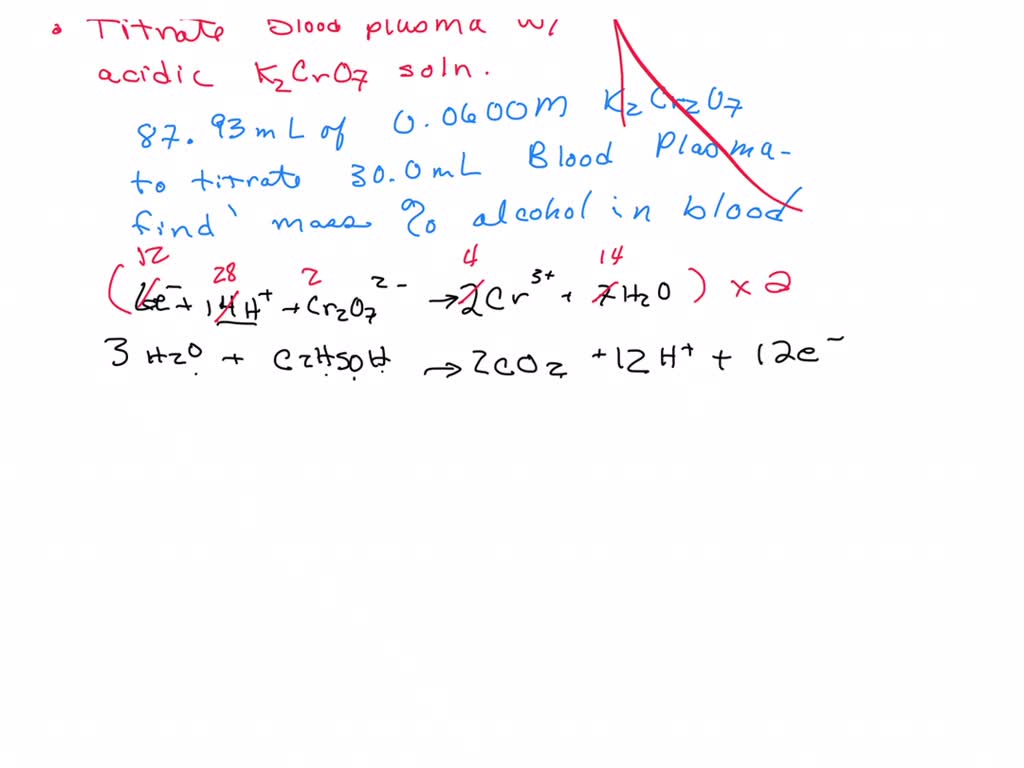 • Titrate Blood plasma w/
acidic K₂CrO7 soln.
87.93mL of 0.0600M K₂Cr₂O7
to titrate 30.0mL Blood Plasma-
find mass % alcohol in blood
12 28 2 4 14
(6e⁻ + 14H⁺ + Cr₂O7²⁻ → 2Cr³⁺ + 7H₂O) x 2
3 H₂O + C₂H5OH → 2CO₂ + 12H⁺ + 12e⁻